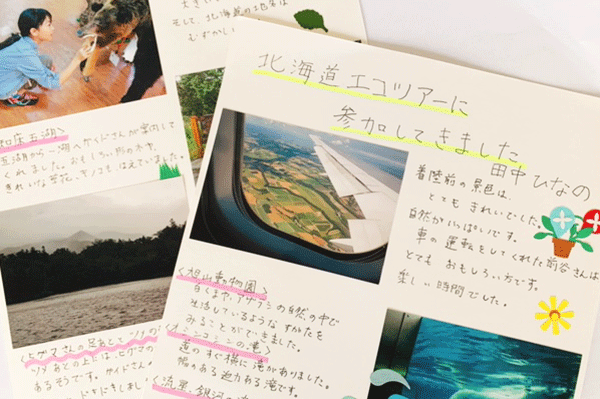 そして、北海道の地名は
むずかしい
知床五湖〉
五湖から一湖へガイドさんが案内して
くれました。おもしろい形の木や、
きれいな草花、キノコもはえていました。
〈ヒグマさんの足あとしてツタの
ツタあとの上には、ヒグマの
あるそうです。ガイドさん
北海道エコツアーに
参加してきました
田中ひなの
着陸前の景色は、
とてもきれいでした。
自然がいっぱいです。
車の運転をしてくれた前谷さんは
とてもおもしろい方です。
楽しい時間でした。
〈旭山動物園〉
白くまや、アザラシの自然の中で
生活しているようなすがたを
みることができました。
〈オシンコシンの滝〉
道のすぐ横に滝がありました。
幅のある迫力ある滝です。
〈流星、銀河の